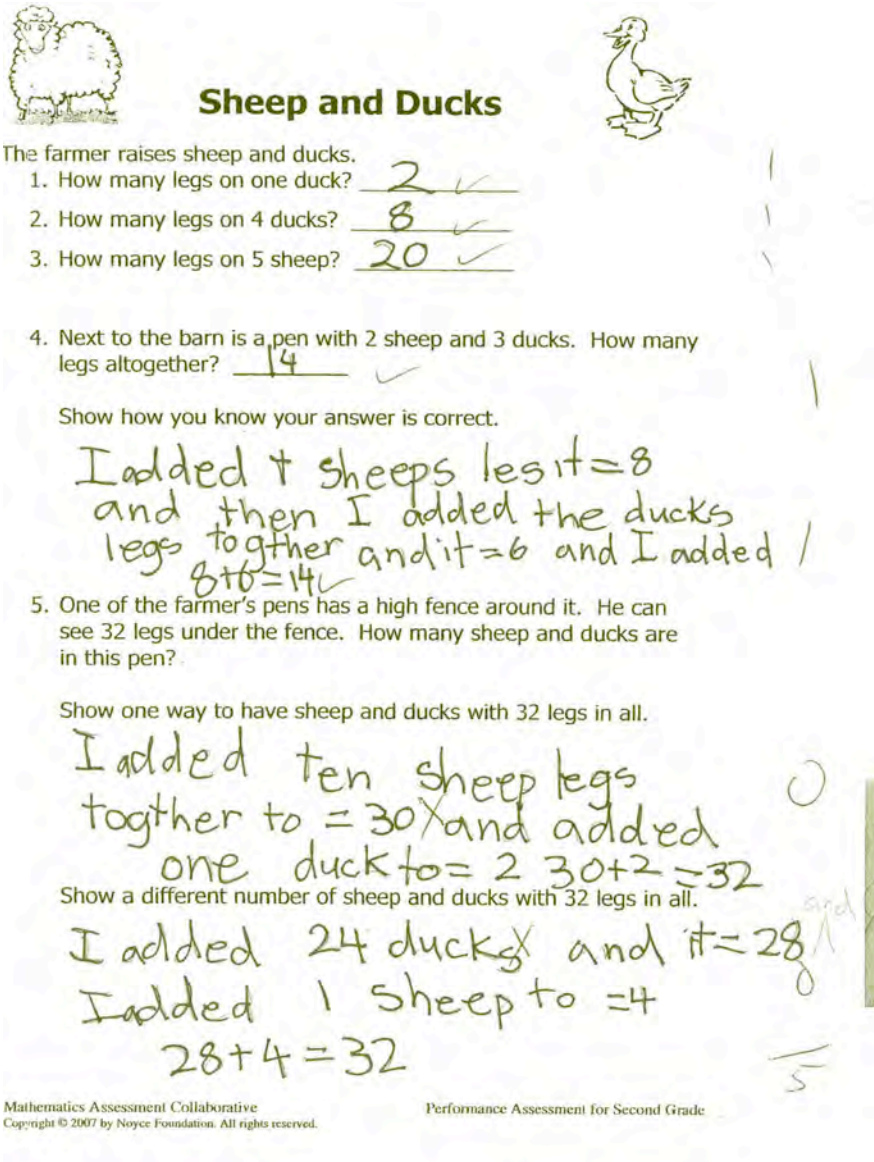 Sheep and Ducks
The farmer raises sheep and ducks.
1. How many legs on one duck? 2 ✓ 1
2. How many legs on 4 ducks? 8 ✓ 1
3. How many legs on 5 sheep? 20 ✓ 1
4. Next to the barn is a pen with 2 sheep and 3 ducks. How many
legs altogether? 14 ✓ 1
Show how you know your answer is correct.
I added t sheeps les it=8
and then I added the ducks
legs togther and it=6 and I added 1
8+6=14 ✓
5. One of the farmer's pens has a high fence around it. He can
see 32 legs under the fence. How many sheep and ducks are
in this pen?
Show one way to have sheep and ducks with 32 legs in all.
I added ten sheep legs 0
togther to =30 X and added
one duck to= 2 30+2=32
Show a different number of sheep and ducks with 32 legs in all.
and
I added 24 ducks X and it=28
I added 1 sheep to =4 0
28+4=32
5
Mathematics Assessment Collaborative Performance Assessment for Second Grade
Copyright © 2007 by Noyce Foundation. All rights reserved.